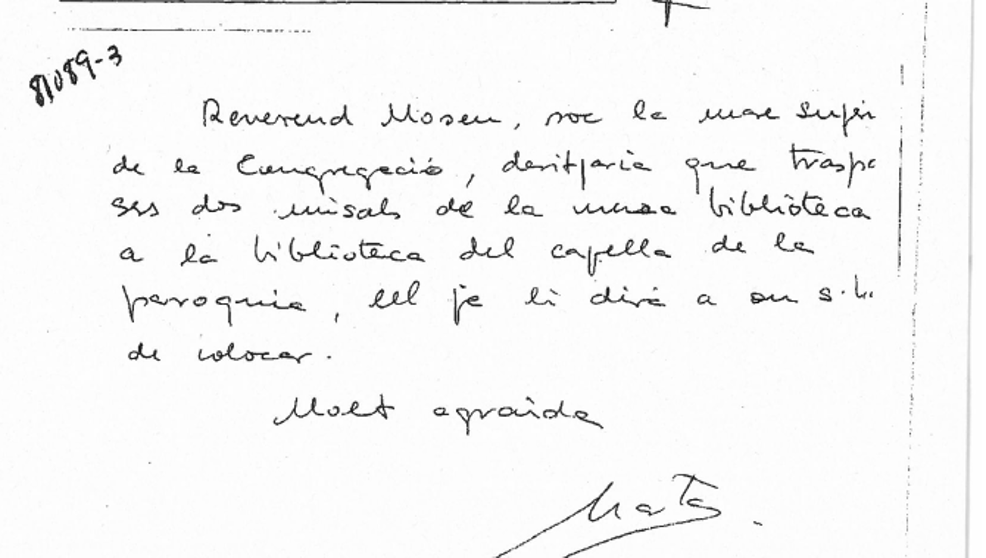 81089-3
Reverend Mosen, soc la mare super
de la Congregació, desitjaria que traspa
ses dos misals de la meva biblioteca
a la biblioteca del capella de la
paroquia, ell ja li dirá a on s.h.
de colocar.
Molt agraida